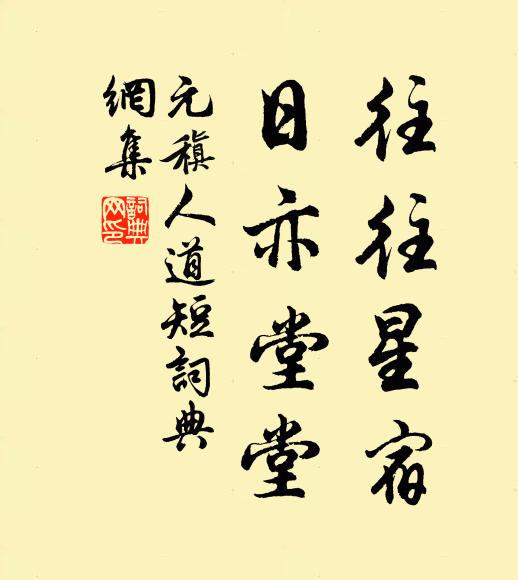 往往星宿
日亦堂堂
元稹人道短詞典
網集
詞典網印